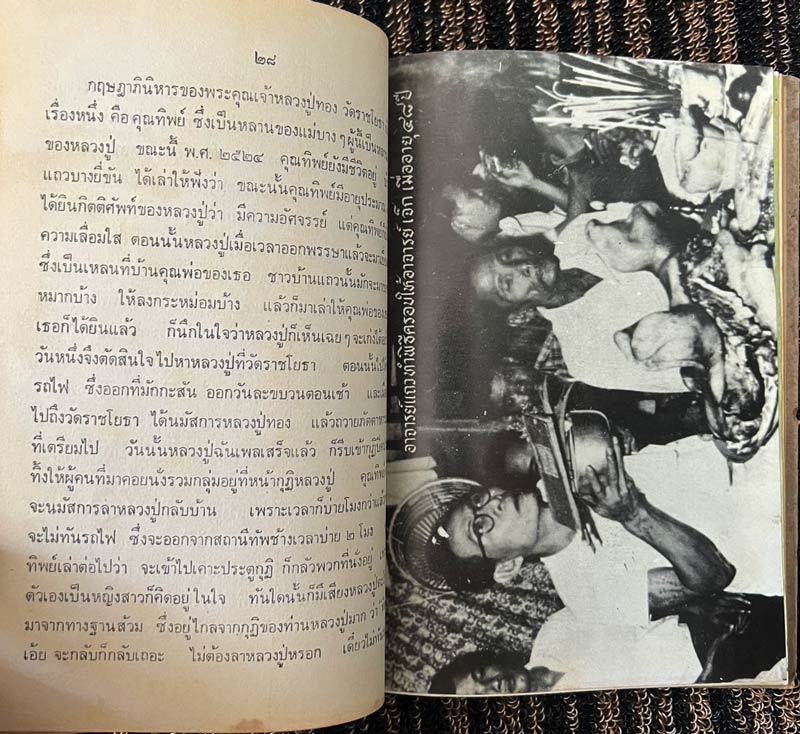 ๒๘
กฤษฎาภินิหารของพระคุณเจ้าหลวงปู่ทอง วัดราชโยธา
เรื่องหนึ่ง คือ คุณทิพย์ ซึ่งเป็นหลานของแม่บาง ๆ ผู้นี้เป็น
ของหลวงปู่ ขณะนี้ พ.ศ. ๒๕๒๔ คุณทิพย์ยังมีชีวิตอยู่
แถวบางยี่ขัน ได้เล่าให้ฟังว่า ขณะนั้นคุณทิพย์มีอายุประมาณ
ได้ยินกิตติศัพท์ของหลวงปู่ว่า มีความอัศจรรย์ แต่คุณทิพย์
ความเลื่อมใส ตอนนั้นหลวงปู่เมื่อเวลาออกพรรษาแล้วจะมา
ซึ่งเป็นเหลนที่บ้านคุณพ่อของเธอ ชาวบ้านแถวนั้นมักจะมา
หมากบ้าง ให้ลงกระหม่อมบ้าง แล้วก็มาเล่าให้คุณพ่อของ
เธอก็ได้ยินแล้ว ก็นึกในใจว่าหลวงปู่ก็เห็นเฉยๆ จะเก่งได้
วันหนึ่งจึงตัดสินใจไปหาหลวงปู่ที่วัดราชโยธา ตอนนั้นไป
รถไฟ ซึ่งออกที่มักกะสัน ออกวันละขบวนตอนเช้า
ไปถึงวัดราชโยธา ได้นมัสการหลวงปู่ทอง แล้วถวายภัตตาหาร
ที่เตรียมไป วันนั้นหลวงปู่ฉันเพลเสร็จแล้ว ก็รีบเข้ากุฏิ
ทิ้งให้ผู้คนที่มาคอยนั่งรวมกลุ่มอยู่ที่หน้ากุฏิหลวงปู่ คุณทิพย์
จะนมัสการลาหลวงปู่กลับบ้าน เพราะเวลาก็บ่ายโมงกว่าแล้ว
จะไม่ทันรถไฟ ซึ่งจะออกจากสถานีทัพช้างเวลาบ่าย ๒ โมง
ทิพย์เล่าต่อไปว่า จะเข้าไปเคาะประตูกุฏิ ก็กลัวพวกที่นั่งอยู่
ตัวเองเป็นหญิงสาวก็คิดอยู่ในใจ ทันใดนั้นก็มีเสียงหลวงปู่
มาจากทางฐานส้วม ซึ่งอยู่ไกลจากกุฏิของท่านหลวงปู่มาก ว่า
เอ้ย จะกลับก็กลับเถอะ ไม่ต้องลาหลวงปู่หรอก เดี๋ยวไม่ทัน
อาจารย์แถวทำพิธีครอบให้อาจารย์ เจ็ก เมื่ออายุ ๔๘ ปี